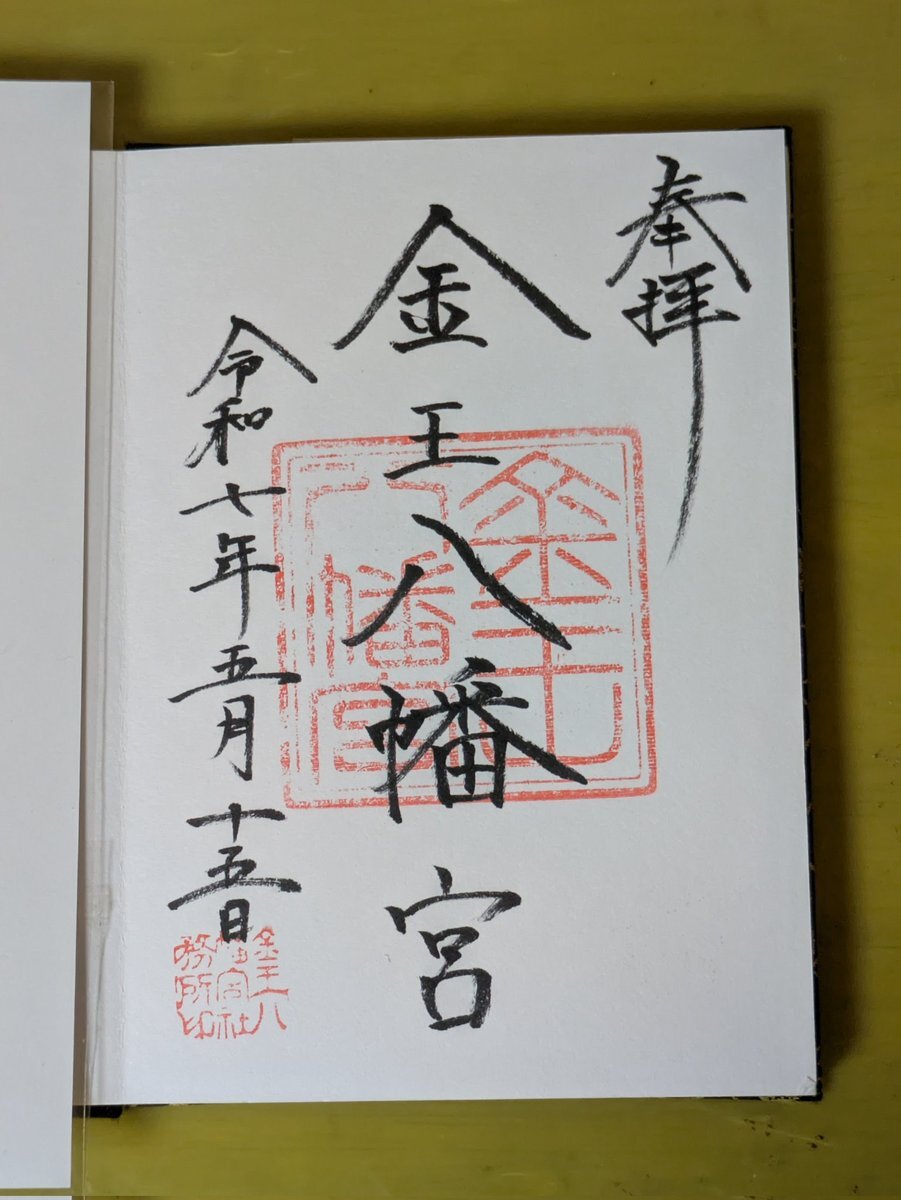 奉拝
金王八幡宮
令和七年五月十五日
金王八幡宮
金王八幡宮社務所印